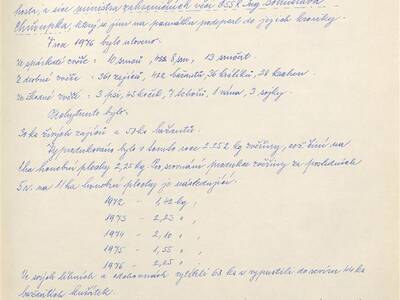 hosta, a sice ministra zahraničních věcí ČSSR Ing. Bohuslava
Chňoupka, který se jim na památku podepsal do jejich kroniky.
V roce 1976 bylo uloveno:
Ze spárkaté zvěře: 10 srnců, 8 srn, 13 srnčat.
Z drobné zvěře: 361 zajíců, 422 bažantů, 36 králíků, 28 kachen.
Ze škodné zvěře: 3 psi, 45 koček, 7 tchořů, 1 vrána, 3 sojky.
bylo:
30 ks živých zajíců a 50 ks bažantů.
Vyprodukováno bylo v tomto roce 2.252 kg zvěřiny, což činí na
1 ha honební plochy 2,25 kg. Pro srovnání produkce zvěřiny za posledních
5 r. na 1 ha honební plochy je následující:
1972 - 1,42 kg,
1973 - 2,23 „,
1974 - 2,10 „,
1975 - 1,55 „,
1976 - 2,25 „,
Ve svých líhních a odchovnách vylíhli 63 ks a vypustili do revíru 44 ks
bažantích kuřátek.